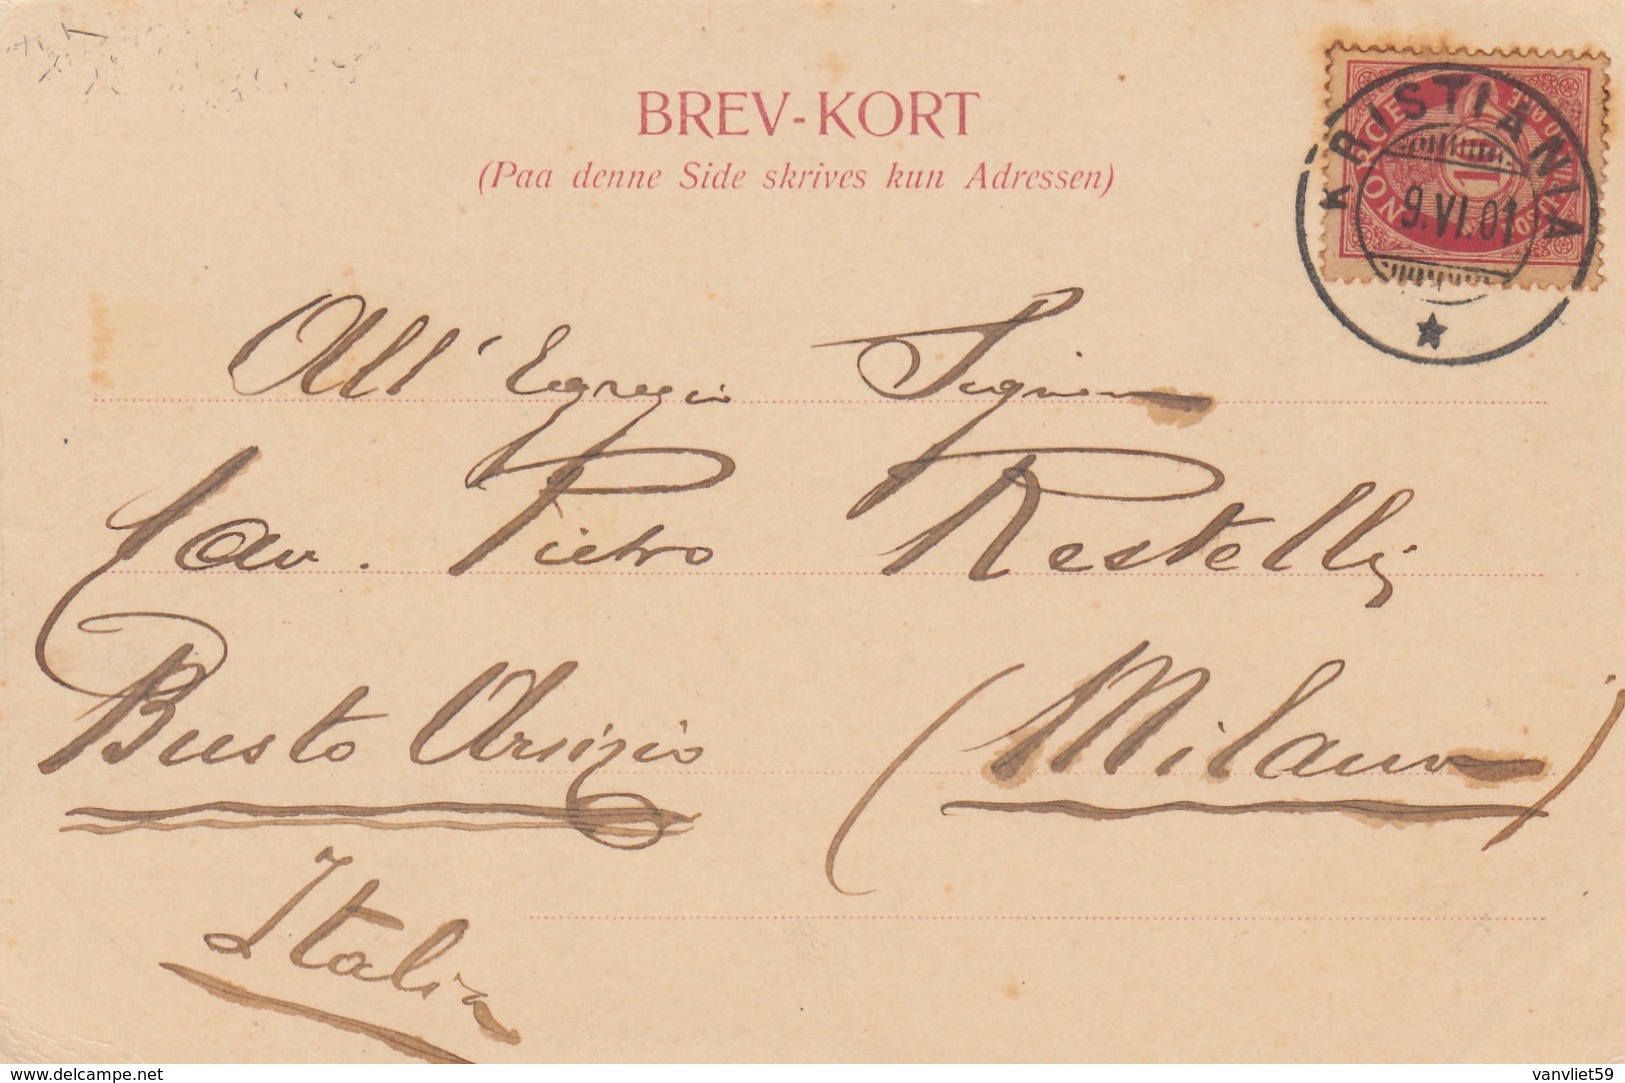 BREV-KORT
(Paa denne Side skrives kun Adressen)
KRISTIANIA
9.VI.01
NORGE
10
All'Egregio Signor
Cav. Pietro Restelli
Busto Arsizio (Milano)
Italia
www.delcampe.net
vanvliet59